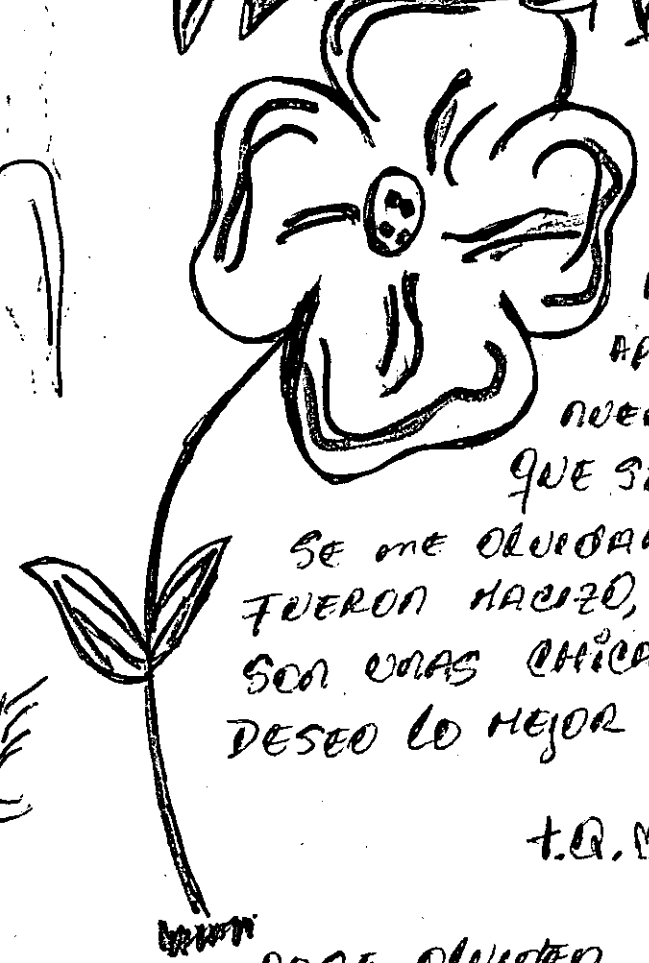 AP
NUE
QUE SI
SE ME OLVIDA
FUERON MACIZO,
SON UNAS CHICA
DESEO LO MEJOR
T.Q.M
OLVIDEN